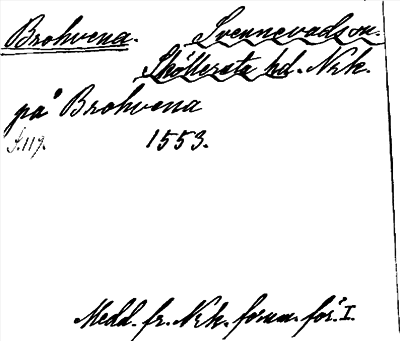 Brohvena. Svennevadson.
Sköllersta hd. Nrk.
på Brohvena
S.117. 1553.
Medd. fr. Nrk. fornm. för. I.